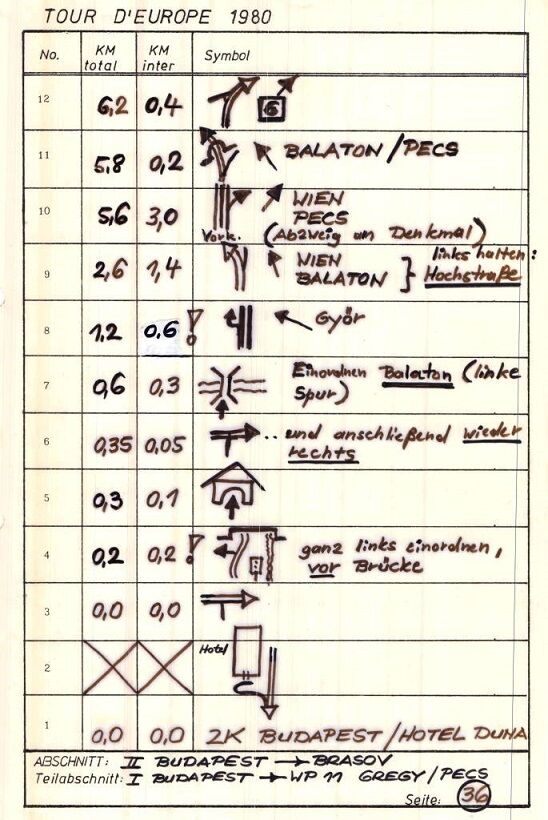 TOUR D'EUROPE 1980
No. KM total KM inter Symbol
12 6,2 0,4 6
11 5,8 0,2 BALATON/PECS
10 5,6 3,0 Vork. WIEN
PECS
(Abzweig am Denkmal)
9 2,6 1,4 WIEN
BALATON } links halten:
Hochstraße
8 1,2 0,6 ! Györ
7 0,6 0,3 Einordnen Balaton (linke
Spur)
6 0,35 0,05 .. und anschließend wieder
rechts
5 0,3 0,1
4 0,2 0,2 ! ganz links einordnen,
vor Brücke
3 0,0 0,0
2 Hotel
1 0,0 0,0 2K BUDAPEST/HOTEL DUNA
ABSCHNITT: II BUDAPEST → BRASOV
Teilabschnitt: I BUDAPEST → WP 11 GREGY/PECS
Seite: 36